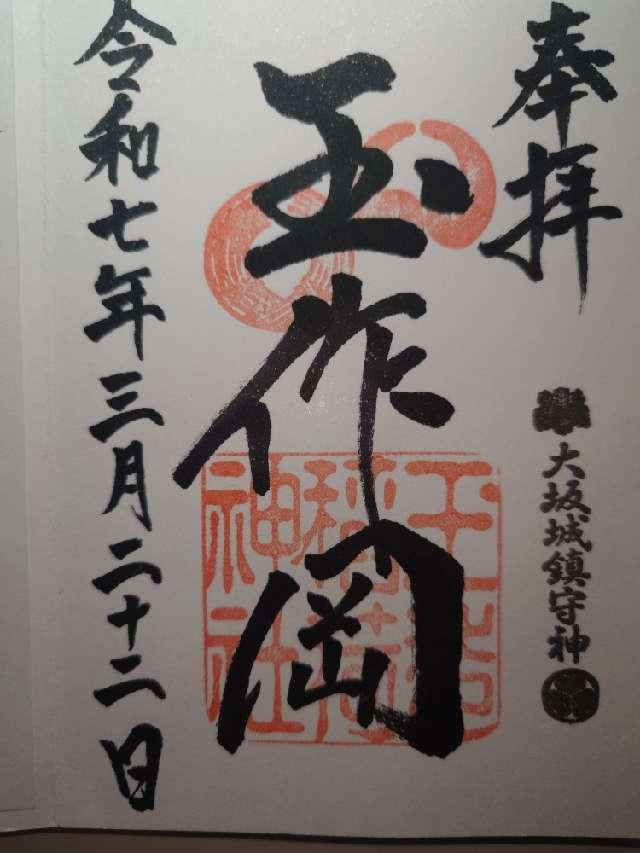 奉拝
大坂城鎮守神
玉作岡
玉造
稲荷
神社
令和七年三月二十二日